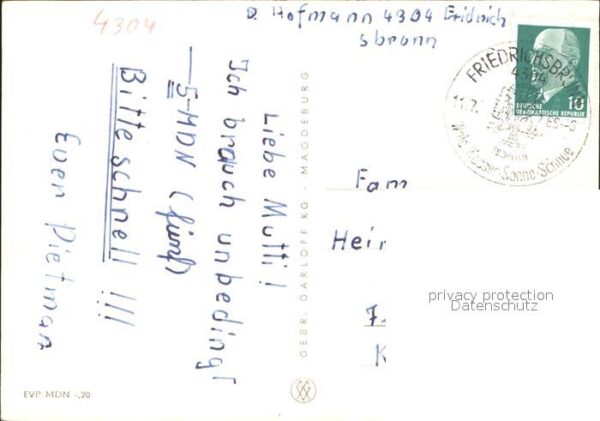 4304
D. Hofmann 4304 Friedrich
sbrunn
FRIEDRICHSBRUNN
4304
11.7.
Wald-Wasser-Sonne-Schnee
DEUTSCHE
DEMOKRATISCHE REPUBLIK
10
Liebe Mutti!
Ich brauch unbedingt
5-MDN (fünf)
Bitte schnell!!!
Euer Dietmar
GEBR. GARLOFF KG · MAGDEBURG
Fam
Heir
7.
K
privacy protection
Datenschutz
EVP MDN -,20